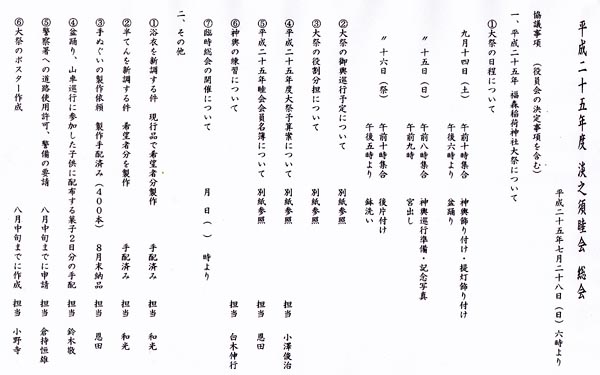 平成二十五年度 淡之須睦会 総会
平成二十五年七月二十八日（日）六時より
協議事項 （役員会の決定事項を含む）
一、平成二十五年 福森稲荷神社大祭について
①大祭の日程について
九月十四日（土） 午前十時集合 神輿飾り付け・提灯飾り付け
午後六時より 盆踊り
〃 十五日（日） 午前八時集合 神輿巡行準備・記念写真
午前九時 宮出し
〃 十六日（祭） 午前十時集合 後片付け
午後五時より 鉢洗い
②大祭の御輿巡行予定について 別紙参照
③大祭の役割分担について 別紙参照
④平成二十五年度大祭予算案について 別紙参照 担当 小澤俊治
⑤平成二十五年睦会会員名簿について 別紙参照 担当 恩田
⑥神輿の練習について 担当 白木伸行
⑦臨時総会の開催について 月 日（ ） 時より
二、その他
①浴衣を新調する件 現行品で希望者分製作 手配済み 担当 和光
②半てんを新調する件 希望者分を製作 手配済み 担当 和光
③手ぬぐいの製作依頼 製作手配済み（400本） 8月末納品 担当 恩田
④盆踊り、山車巡行に参加した子供に配布する菓子2日分の手配 担当 鈴木敬
⑤警察署への道路使用許可、警備の要請 八月中旬までに申請 担当 倉持恒雄
⑥大祭のポスター作成 八月中旬までに作成 担当 小野寺